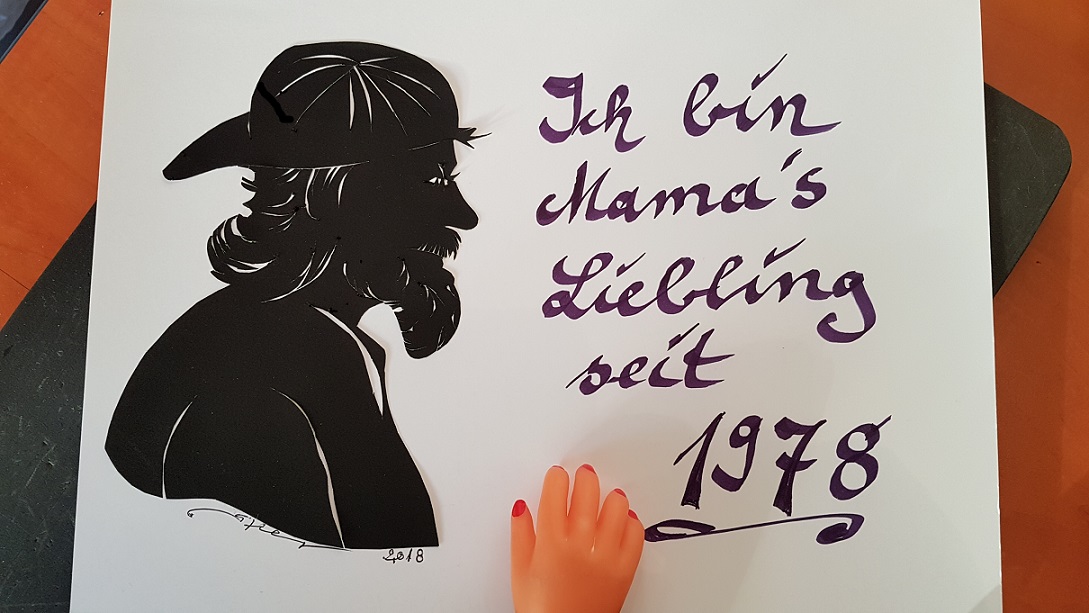 Ich bin
Mama's
Liebling
seit
1978
2018